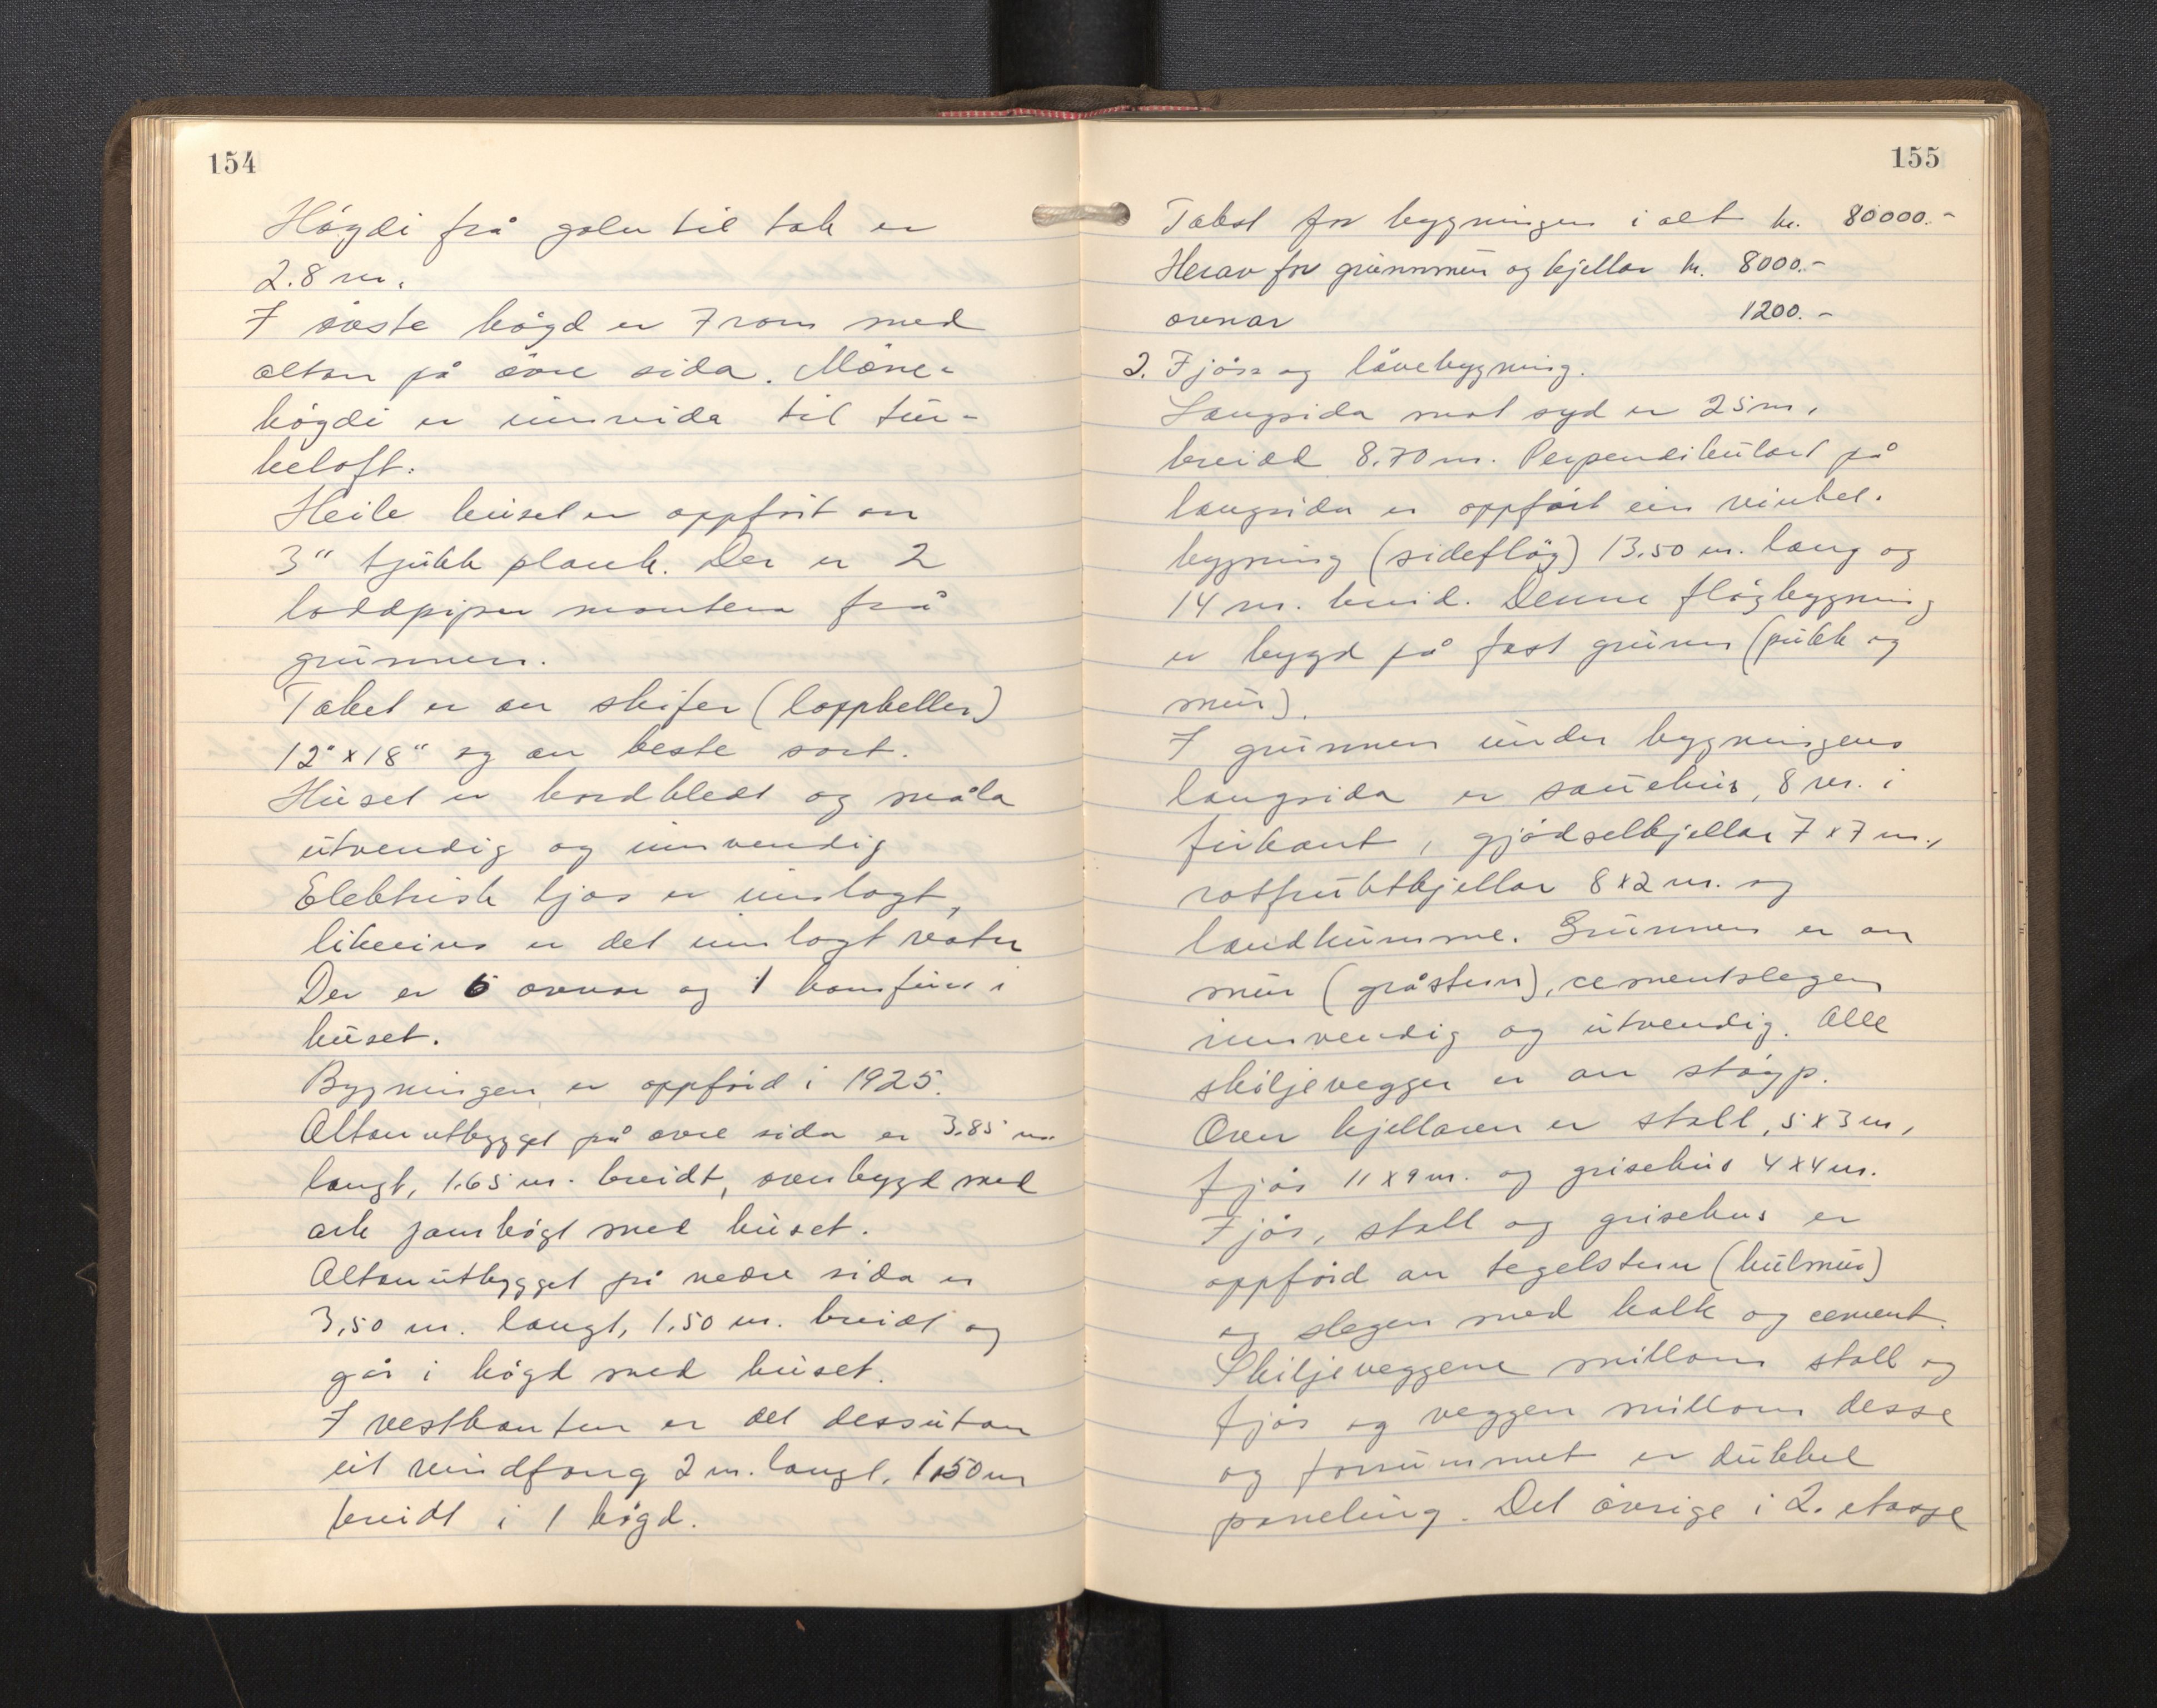 154
Högdi frå golv til tak er
2.8 m.
I övste högd er 7 rom med
altan på övre sida. Møne-
högdi er innreida til tur-
keloft.
Heile huset er oppfört av
3" tjukk plank. Der er 2
loddpiper montera frå
grunnen.
Taket er av skifer (lappheller)
12" x 18" og av beste sort.
Huset er bordkledt og måla
utvendig og innvendig
Elektrisk ljos er innlagt,
likeeins er det innlagt vatn
Der er 6 ovnar og 1 komfur i
huset.
Bygningen er oppförd i 1925.
Altanutbygget på øvre sida er 3.85 m.
langt, 1.65 m. breidt, overbygd med
ark jamhögt med huset.
Altanutbygget på nedre sida er
3,50 m. langt, 1.50 m. breidt og
går i högd med huset.
I vestkanten er det dessutan
eit vindfang 2 m. langt, 1,50 m
breidt i 1 högd.
155
Takst for bygningen i alt kr. 80000.-
Herav for grunnmur og kjellar kr. 8000.-
ovnar 1200.-
2. Fjös- og låvebygning.
Langsida mot syd er 25 m,
breidd 8.70 m. Perpendikulært på
langsida er oppfört ein vinkel-
bygning (sideflöy) 13.50 m. lang og
14 m. breid. Denne flöybygning
er bygd på fast grunn (pukk og
mur).
I grunnen under bygningens
langsida er sauehus, 8 m. i
firkant, gjödselkjellar 7 x 7 m.,
rotfruktkjellar 8 x 2 m. og
landkumme. Grunnen er av
mur (gråstein), cementslegen
innvendig og utvendig. Alle
skiljevegger er av stöyp.
Over kjellaren er stall, 5 x 3 m,
fjös 11 x 9 m. og grisehus 4 x 4 m.
Fjös, stall og grisehus er
oppförd av tegelstein (hulmur)
og slegen med kalk og cement.
Skiljeveggene millom stall og
fjös og veggen millom desse
og forrummet er dubbel
paneling. Det övrige i 2. etasje